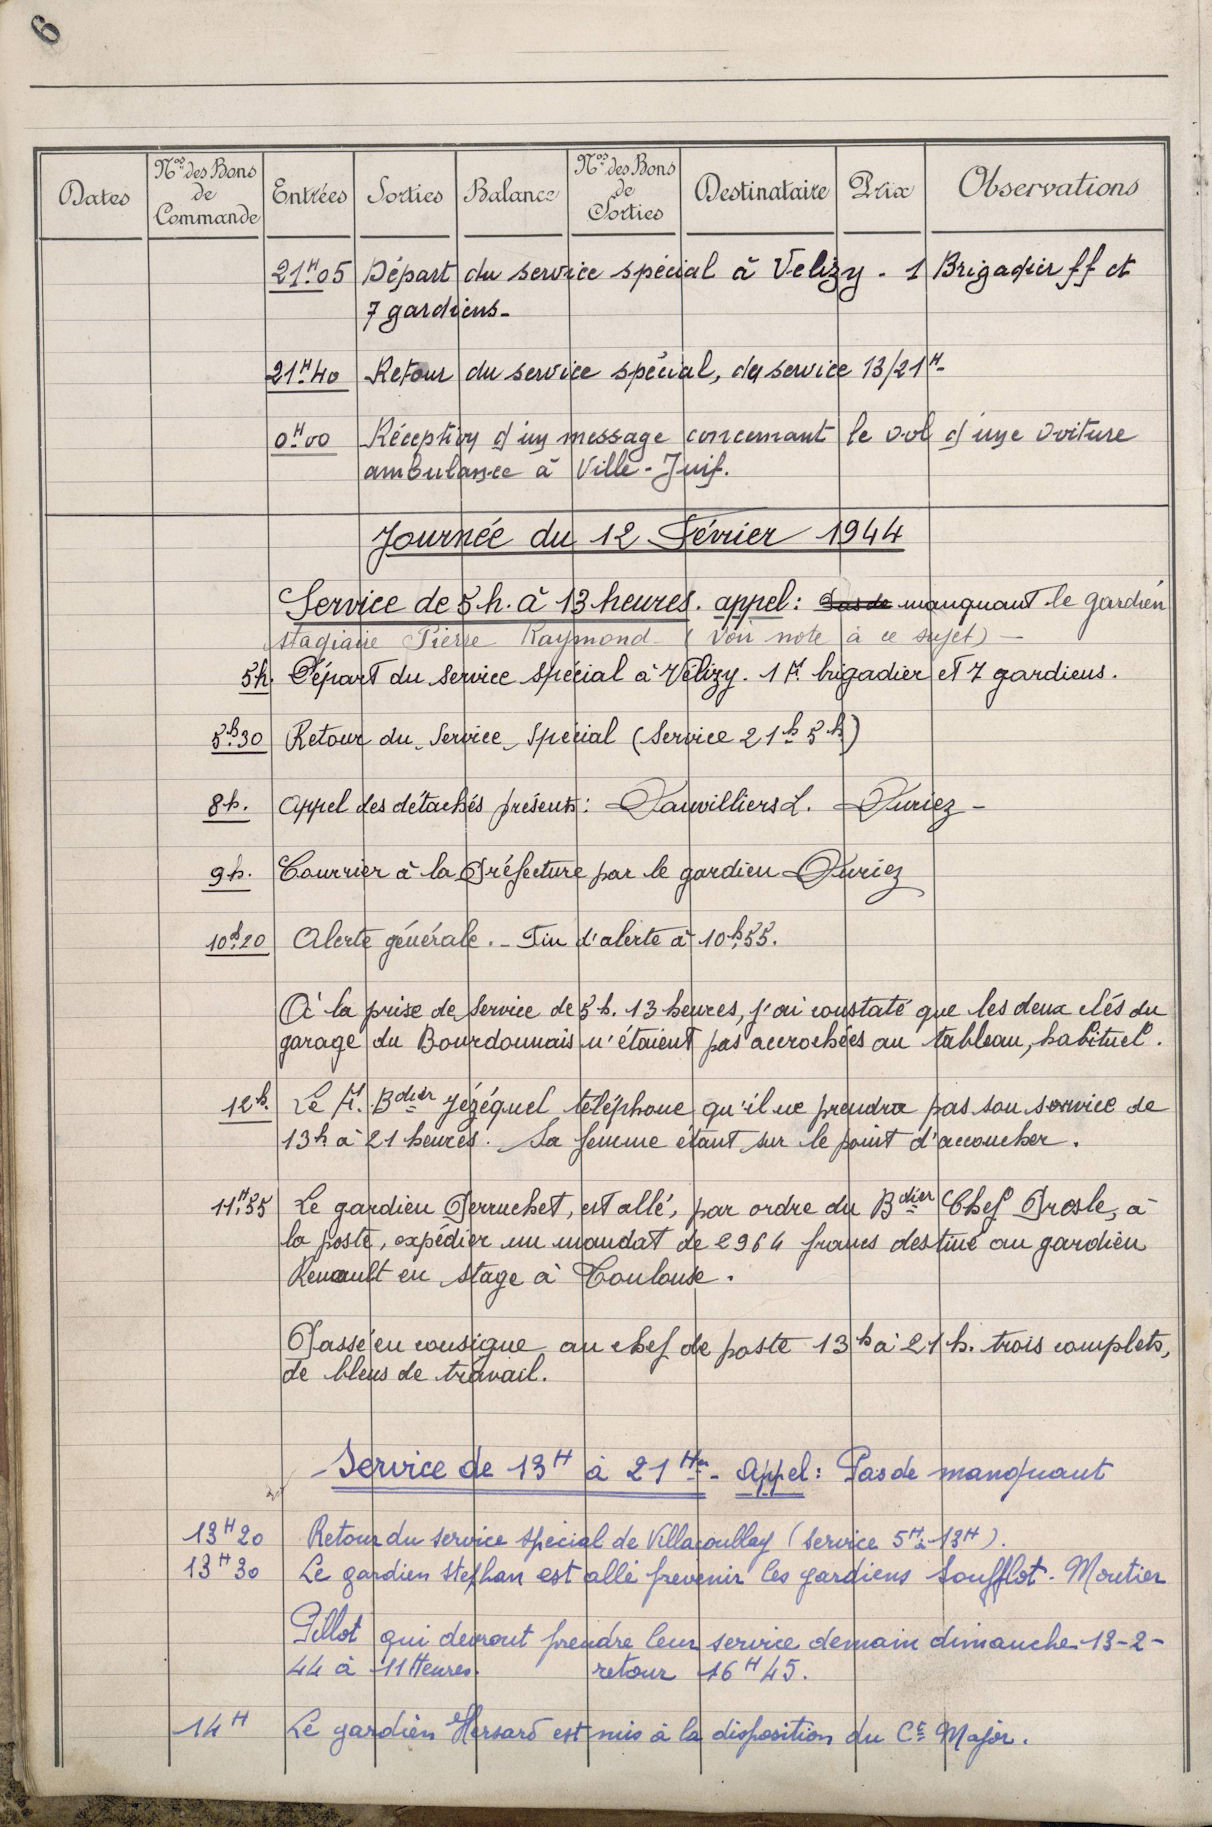 6
Dates
Nos des Bons
de
Commande
Entrées
Sorties
Balance
Nos des Bons
de
Sorties
Destinataire
Prix
Observations
21H05 Départ du service spécial à Velizy - 1 Brigadier ff et
7 gardiens -
21H40 Retour du service spécial, du service 13/21H -
0H00 Réception d'un message concernant le vol d'une voiture
ambulance à Ville-Juif.
Journée du 12 Février 1944
Service de 5h. à 13 heures. appel : Pas de manquant le gardien
stagiaire Pierre Raymond - (Voir note à ce sujet) -
5h. Départ du service spécial à Vélizy. 1 F. brigadier et 7 gardiens.
5h30 Retour du Service Spécial (Service 21h 5h)
8h. Appel des détachés présents : Vauvilliers L. Duriez -
9h. Courrier à la Préfecture par le gardien Duriez
10h20 Alerte générale. - Fin d'alerte à 10h55.
A la prise de service de 5h. 13 heures, j'ai constaté que les deux clés du
garage du Bourdonnais n'étaient pas accrochées au tableau, habituel.
12h. Le F. Bdier Jézéquel téléphone qu'il ne prendra pas son service de
13h à 21 heures. Sa femme étant sur le point d'accoucher.
11H55 Le gardien Perruchet, est allé, par ordre du Bdier Chef Presle, à
la poste, expédier un mandat de 2964 francs destiné au gardien
Renault en stage à Toulouse.
Passé en consigne au chef de poste 13h à 21h. trois complets,
de bleus de travail.
- Service de 13H à 21H - Appel : Pas de manquant
13H20 Retour du service spécial de Villacoublay (service 5H à 13H).
13H30 Le gardien Stephan est allé prevenir les gardiens Soufflot - Moutier
Pillot qui devront prendre leur service demain dimanche 13-2-
44 à 11 Heures. retour 16H45.
14H Le gardien Hersard est mis à la disposition du Ct Major.